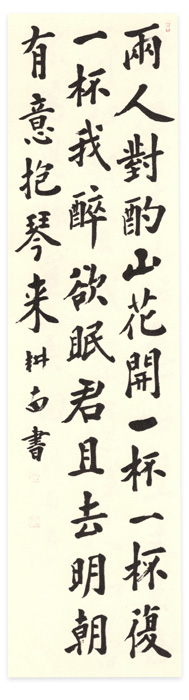 兩人對酌山花開一杯一杯復
一杯我醉欲眠君且去明朝
有意抱琴来耕石書